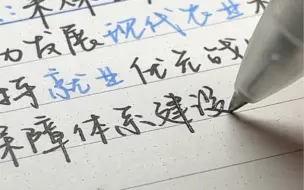 力发展现代农业
持就业优先战
保障体系建设